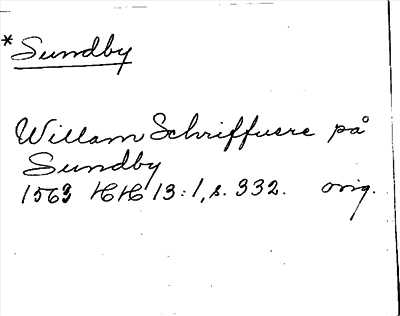 * Sundby
Willam Schriffuere på
Sundby
1563 HH 13:1, s. 332. orig.